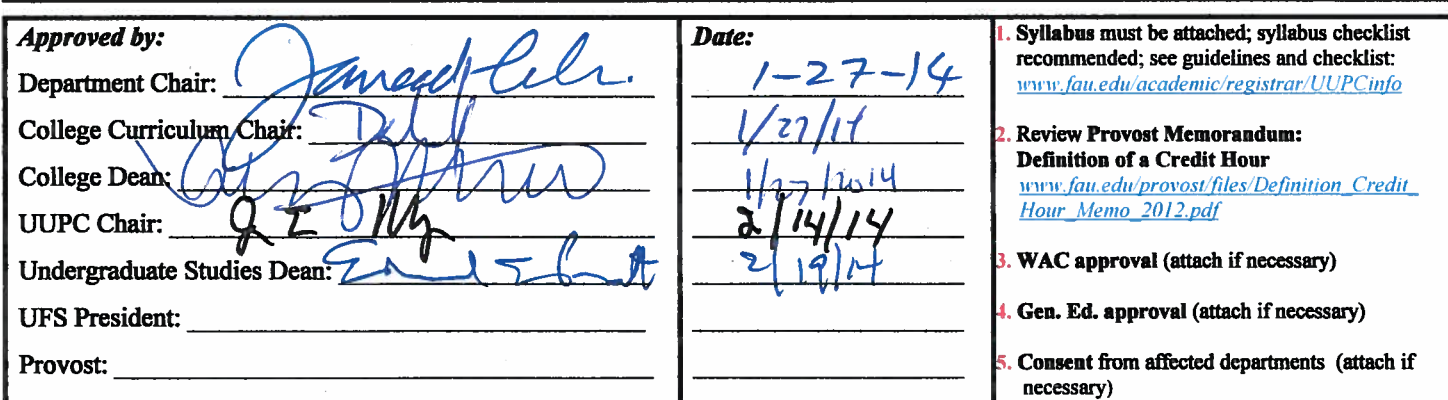 Approved by:
Department Chair:
College Curriculum Chair:
College Dean:
UUPC Chair:
Undergraduate Studies Dean:
UFS President:
Provost:
Date:
1-27-14
1/27/14
1/27/2014
2/14/14
2/19/14
1. Syllabus must be attached; syllabus checklist
recommended; see guidelines and checklist:
www.fau.edu/academic/registrar/UUPCinfo
2. Review Provost Memorandum:
Definition of a Credit Hour
www.fau.edu/provost/files/Definition_Credit_
Hour_Memo_2012.pdf
3. WAC approval (attach if necessary)
4. Gen. Ed. approval (attach if necessary)
5. Consent from affected departments (attach if
necessary)